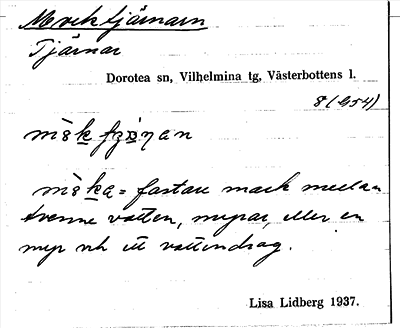 Morktjärnarn
Tjärnar
Dorotea sn, Vilhelmina tg, Västerbottens l.
8 (G54)
= fastare mark mellan
tvenne vatten, myrar, eller en
myr och ett vattendrag.
Lisa Lidberg 1937.